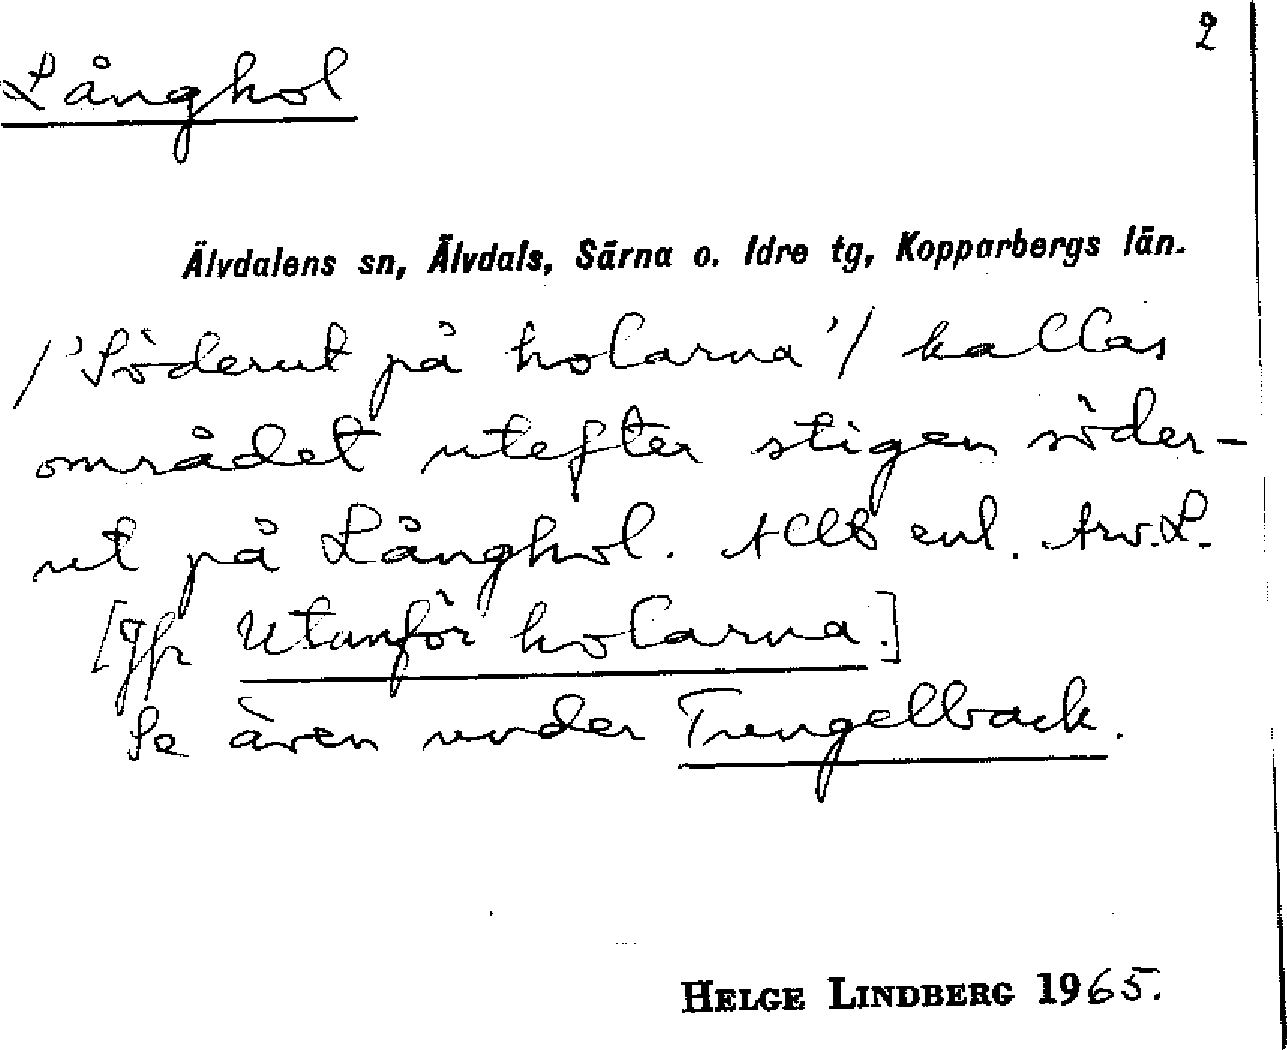 2
Långhol
Älvdalens sn, Älvdals, Särna o. Idre tg, Kopparbergs län.
/'Söderut på holarna'/ kallas
området utefter stigen söder-
ut på Långhol. Allt enl. Arv.L.
[Jfr Utanför holarna.]
Se även under Trengelback.
HELGE LINDBERG 1965.